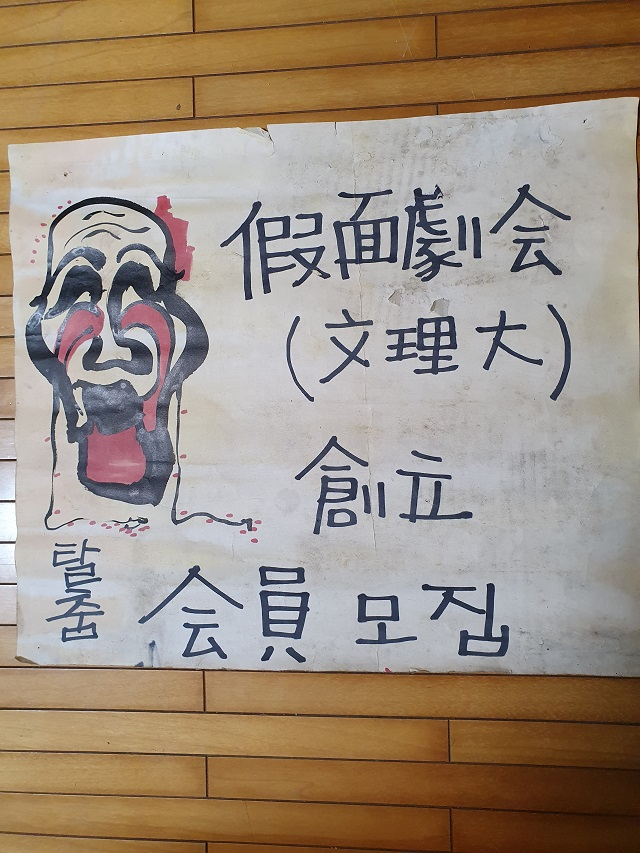 假面劇会
(文理大)
創立
탈춤
会員 모집